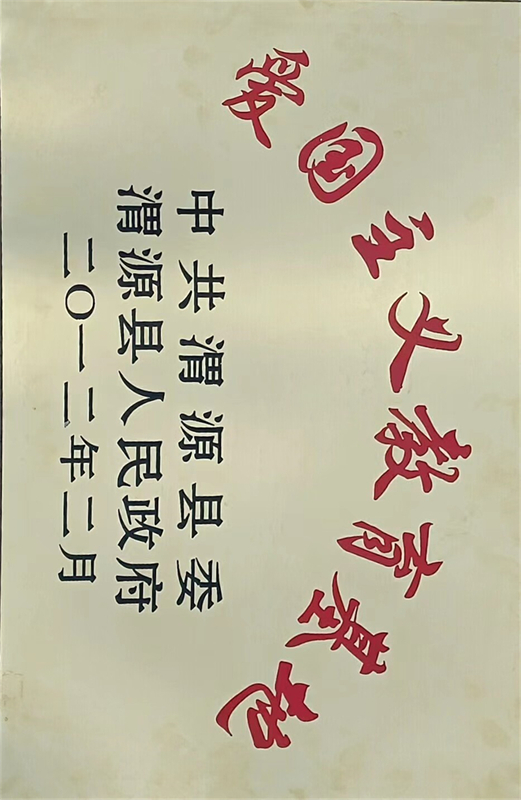 爱国主义教育基地
中共渭源县委
渭源县人民政府
二〇一二年二月